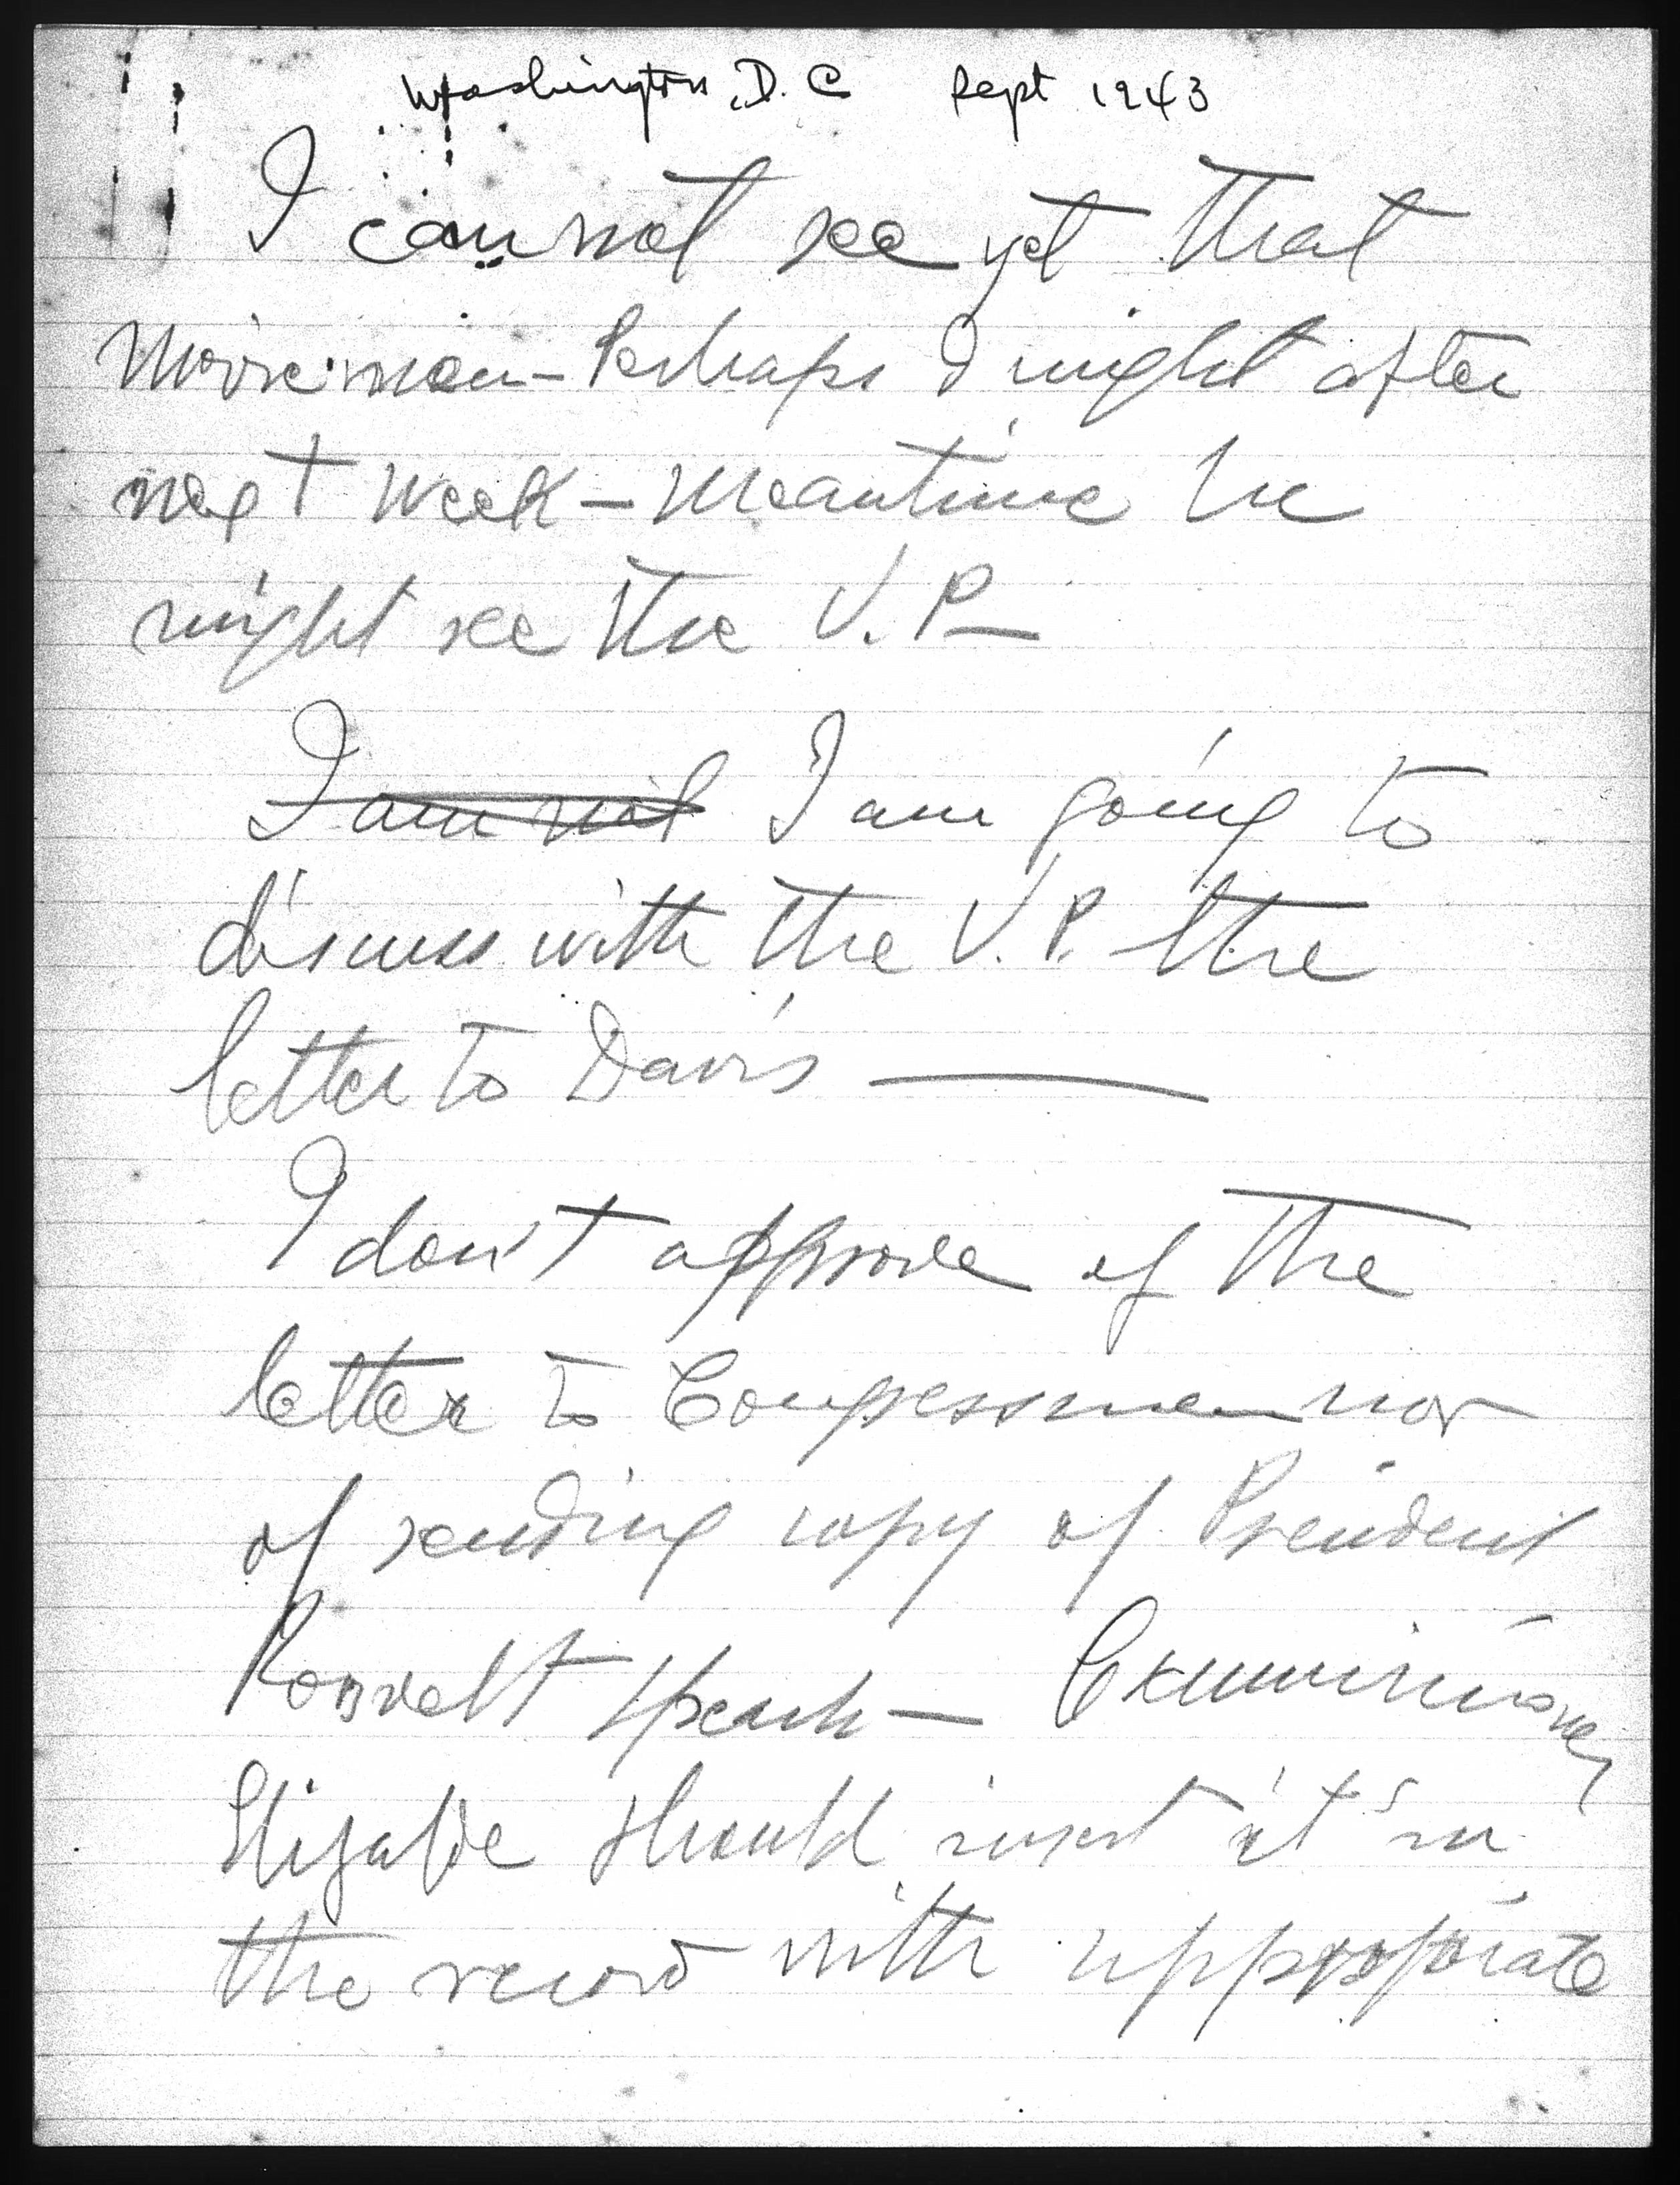 Washington, D.C Sept 1943
I cannot see yet that
Movie man - Perhaps I might after
next week - meantime he
might see the V.P -
I am not I am going to
discuss with the V.P. the
letter to Davis
I don't approve of the
letter to Congressmen nor
of sending copy of President
Roosvelt speach -
Elizalde should insert it in
the record with appropriate